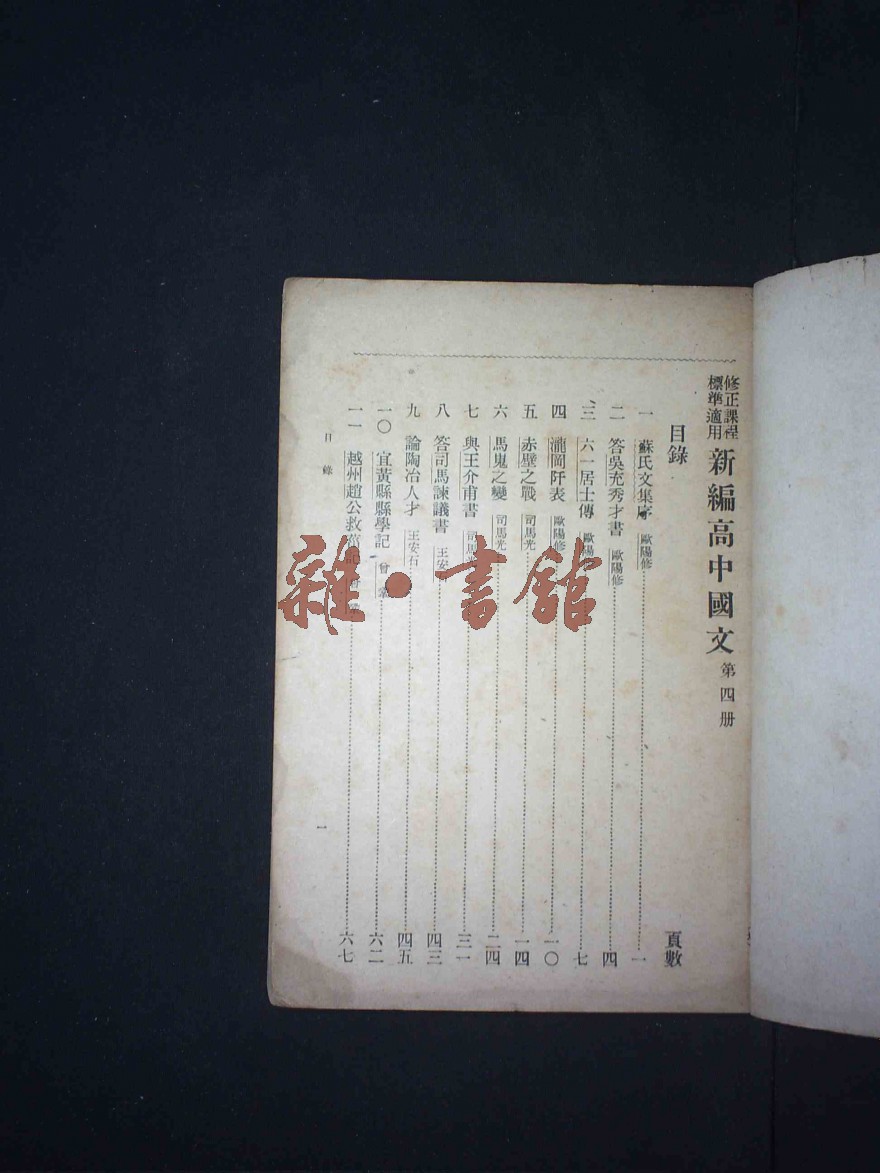 修正課程
標準適用
新編高中國文 第四册
目錄
頁數
一 蘇氏文集序 歐陽修 一
二 答吳充秀才書 歐陽修 四
三 六一居士傳 歐陽 七
四 瀧岡阡表 歐陽修 一〇
五 赤壁之戰 司馬光 一四
六 馬嵬之變 司馬光 二四
七 與王介甫書 司馬光 三一
八 答司馬諫議書 王安 四三
九 論陶冶人才 王安石 四五
一〇 宜黃縣縣學記 曾鞏 六二
一一 越州趙公救菑記 曾鞏 六七
目錄
一
雜·書館